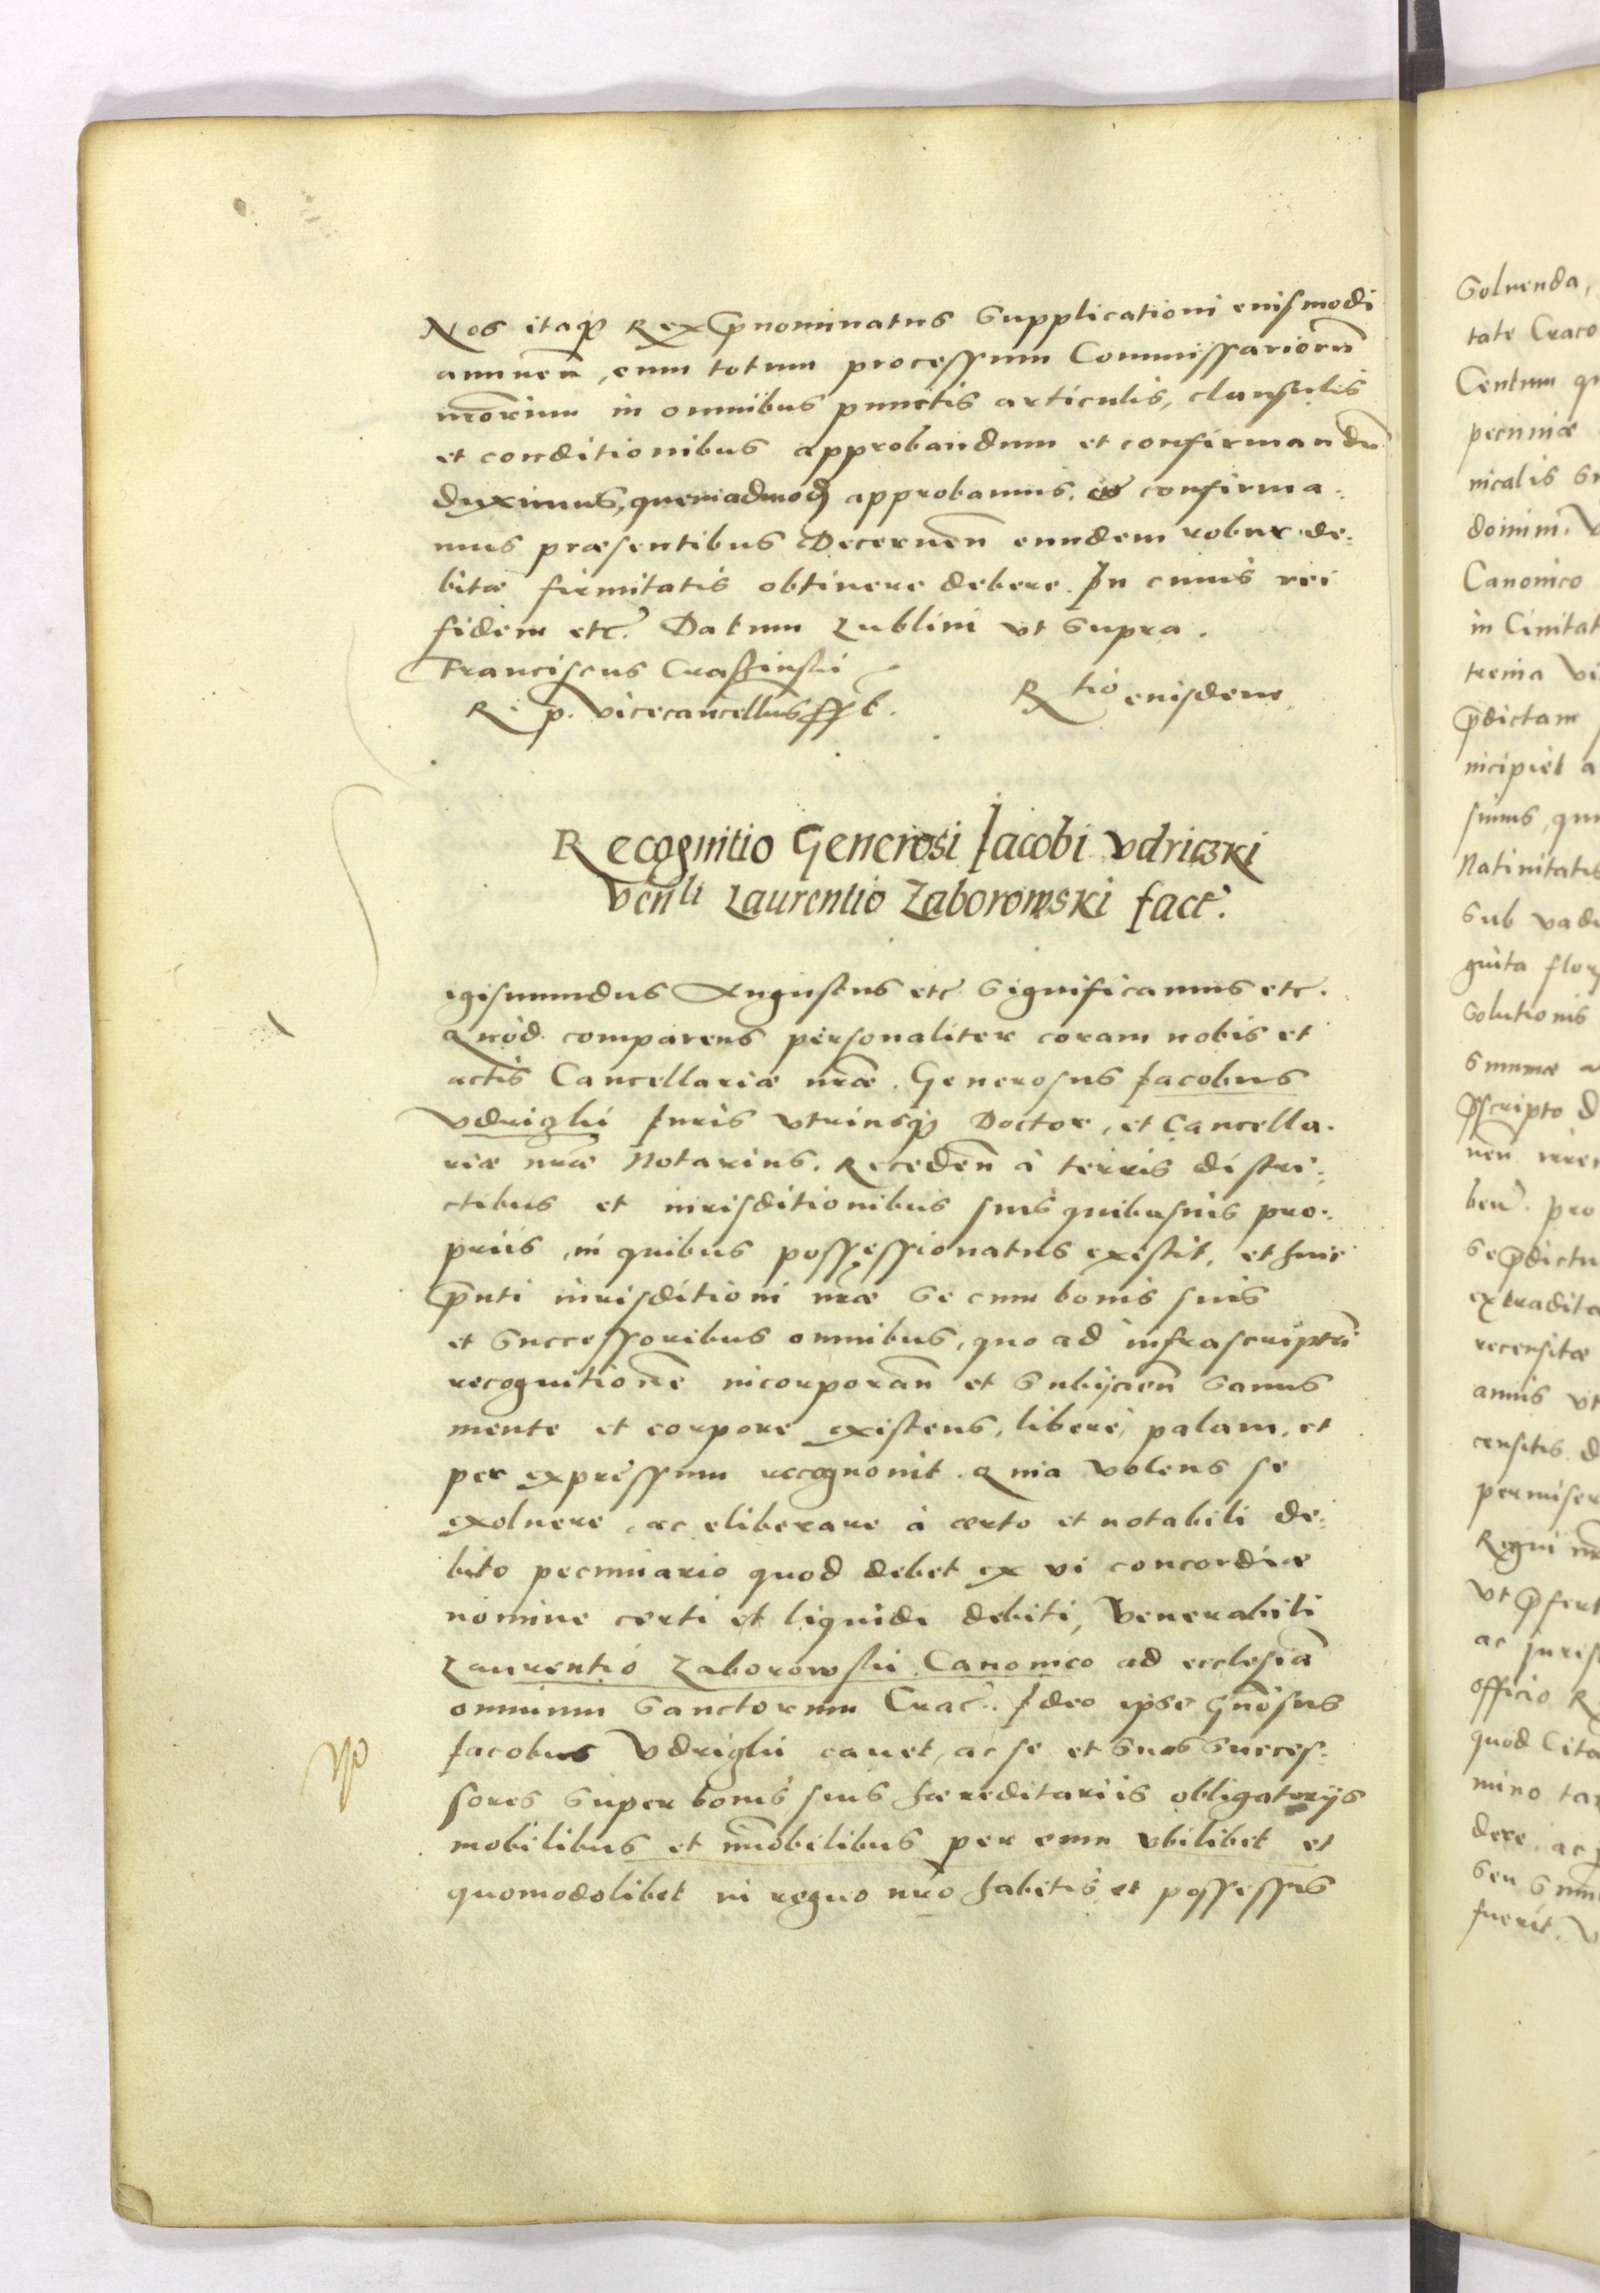 Nos itaq₃ Rex p̄nominatus Supplicationi euismodi
annuen̄, eum totum processum Commissarioru̅
nr̄orum in omnibus punctis articulis, clausulis
et conditionibus approbandum et confirmandu̅
duximus, quemadmod₃ approbamus, et confirma-
mus præsentibus Decernen̄ eundem robur de-
bitæ firmitatis obtinere debere. In cuius rei
fidem etc. Datum Lublini vt Supra.
Franciscus Crassinski
R. p. Vicecancellus ſſt.
Rtio eiusdem
Recognitio Generosi Jacobi Vdriczki
Venli Laurentio Zaborowski fact.
igismundus Augustus etc Significamus etc.
Quod comparens personaliter coram nobis et
actis Cancellariæ nr̄æ. Generosus Jacobus
Vdrizki Juris Vtriusq₃ Doctor, et Cancella-
riæ nr̄æ Notarius. Receden̄ à terris distri-
ctibus et iurisditionibus suis quibusuis pro-
priis, in quibus possessionatus existit, et huic
p̄nti iurisditioni nr̄æ Se cum bonis suis
et Successoribus omnibus, quo ad infrascripta̅
recognitione̅ incorporan̄ et Subijcien̄ Sanus
mente et corpore existens, liberè, palam, et
per expressum recognouit. Quia Volens se
exoluere, ac eliberare à certo et notabili de-
bito pecuniario quod debet ex vi concordiæ
nomine certi et liquidi debiti, Venerabili
Laurentio Zaborowski Canonico ad ecclesia̅
omnium Sanctorum Crac. Ideo ipse Gn̄osus
Jacobus Vdrizki cauet, ac se et Suos Succes-
sores Super bonis suis hæreditariis obligatorijs
mobilibus et im̄obilibus per eum vbilibet et
quomodolibet in regno nr̄o habitis et possessis
Soluenda,
tate Craco
Centum qu
pecuniæ
nicalis Su
domini. V
Canonico
in Ciuitat
trema vi
p̄dictam
incipiet a
simus, qui
Natiuitatis
Sub vadi
guita flor
Solutionis
Summæ a
p̄scripto d
ben̄. pro
Se p̄dictu
extradita
recensitæ
annis vt
censitis d
permiser
Regni nr̄
Vt p̄fert
ac Juris
officio R
quod Cita
mino tan
dere, ac
Seu Sum
fuerit. V